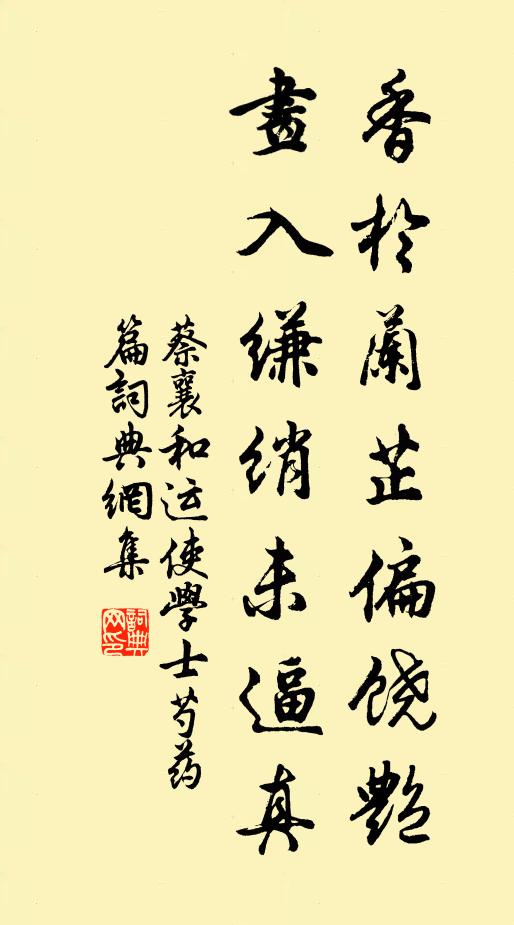 香於蘭芷偏饶艷
畫入缣綃未逼真
蔡襄和运使學士芍药
篇詞典網集
詞典网印